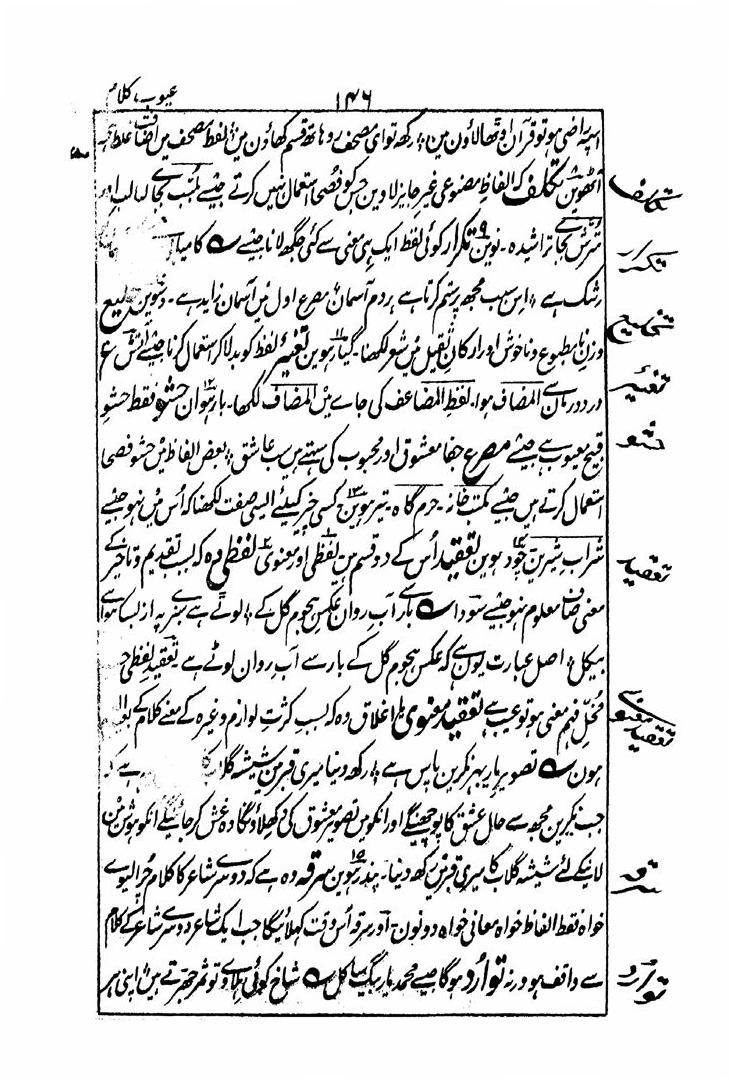 ۱۴۶
عیوب کلام
اسپہ راضی ہو تو قرآن اوٹھالاؤن مین ؛ رکھ تو ای مصحف رو ہاتھ قسم کھاؤن مین ؛ لفظ مصحف مین اضافت غلط ہے
آٹھوین تکلف کہ الفاظ مصنوعی غیر جایز لاوین جس کو فصحا استعمال نہین کرتے جیسے بجاے لبالب اور
تکلف
بجا تراشیدہ ۔ نوین تکرار کوئی لفظ ایک ہی معنی سے کئی جگھ لانا جیسے
تکرار
رشک ہے ؛ اس سبب مجھ پر ستم کرتا ہے ہر دم آسمان ؛ مصرع اول مین آسمان زاید ہے ۔ دسوین
وزن نامطبوع و ناخوش اور ارکان ثقیل مین شعر لکھنا ۔ گیارہوین تغییر لفظ کو بدلا کر استعمال کرنا جیسے آتش ع
تغییر
درد درمان سے المضاف ہوا ۔ لفظ المضاعف کی جاے مین المضاف لکھا ۔ بارہوان حشو فقط حشو
حشو
قبیح معیوب ہے جیسے مصرع جفا معشوق اور محبوب کی سہتے ہین سب عاشق ؛ بعض الفاظ مین حشو فصحا
استعمال کرتے ہین جیسے مکتب خانہ ۔ حرم گاہ ۔ تیرہوین کسی چیز کیلئے ایسی صفت لکھنا کہ اُس مین نہو جیسے
شراب شیرین چودہوین تعقید اُس کے دو قسم ہین لفظی اور معنوی لفظی وہ کہ بسبب تقدیم و تاخیر کے
تعقید
معنی صاف معلوم نہو جیسے سودا بارے آب روان عکس ہجوم گل کے ؛ لوٹے ہے سبزہ پہ از بس
بیکل ؛ اصل عبارت یون ہے کہ عکس ہجوم گل کے بار سے آب روان لوٹے ہے تعقید لفظی
مخل فہم معنی ہو تو عیب ہے تعقید معنوی یا اغلاق وہ کہ بسبب کثرت لوازم و غیرہ کے معنے کلام کے
تعقید معنوی
ہون تصویر یار بہر نکیرین پاس ہے ؛ رکھ دنیا میری قبر مین شیشہ گلاب کا ہے کہ
جب نکیرین مجھ سے حال عشق کا پوچھینگے اور انکو مین تصویر معشوق کی دکھلاؤنگا وہ غش کر جائینگے انکو ہوش مین
لانیکے لئے شیشہ گلاب کا میری قبر مین رکھ دنیا ۔ پندرہوین سرقہ وہ ہے کہ دوسرے شاعر کا کلام چرا لیوے
سرقہ
خواہ فقط الفاظ خواہ معانی خواہ دونون اور سرقہ اُس وقت کہلائیگا جب ایک شاعر دوسرے شاعر کے کلام
سے واقف ہو ورنہ توارد ہوگا جیسے محمد یار بیگ سایل شاخ کوئی ہلاوے تو ثمر جھڑتے ہین ؛ اپنی ہر
توارد